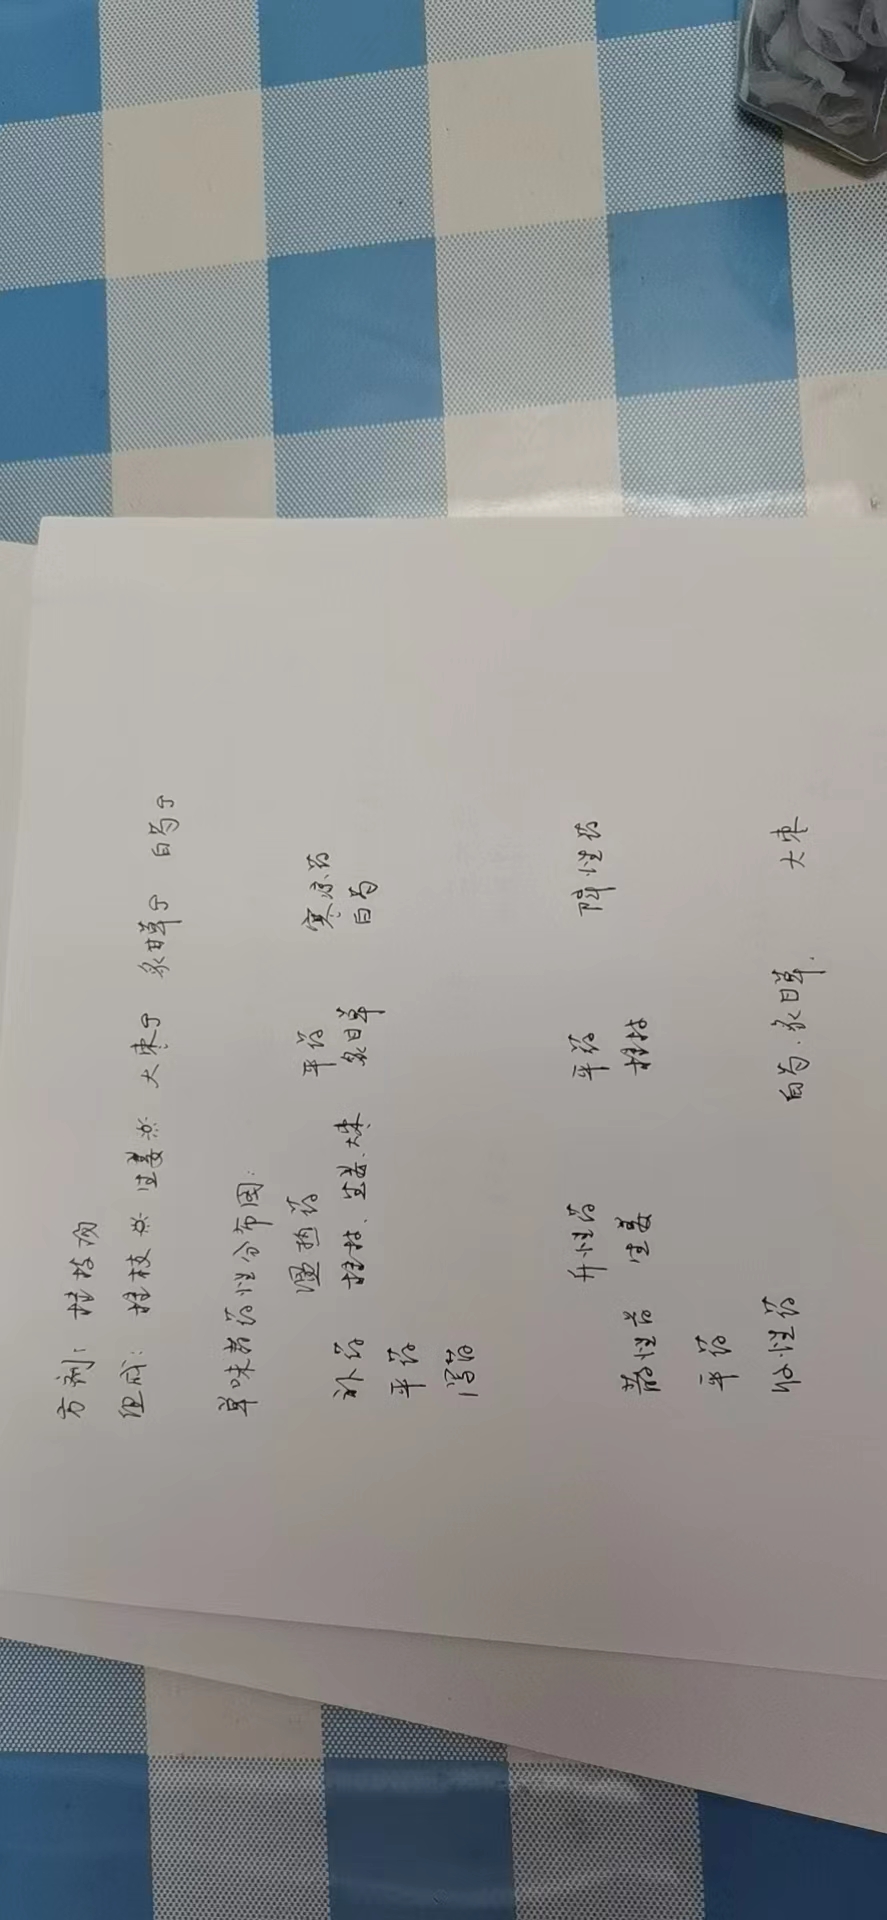 方剂: 桂枝汤
组成: 桂枝 生姜 大枣 炙甘草 白芍
单味者药性分布图:
温热药 平药 寒凉药
补药 桂枝、生姜、大枣 炙甘草 白芍
平药
泻药
升性药 平药 降性药
散性药 生姜 桂枝
平药
收性药 白芍、炙甘草. 大枣